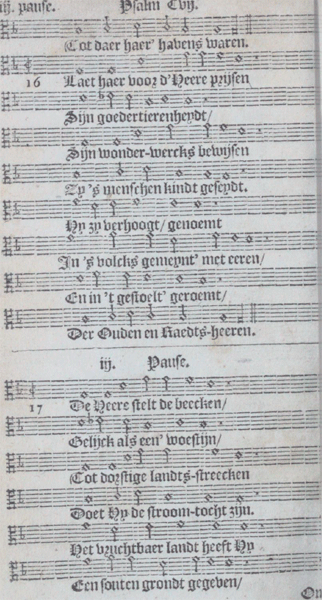 iij. pause. Psalm Cvij.
Tot daer haer' havens waren.
16 Laet haer voor d'Heere prijsen
Sijn goedertierenheydt/
Sijn wonder-wercks bewijsen
Zy 's menschen kindt geseydt.
Hy zy verhoogt/ genoemt
In 's volcks gemeynt' met eeren/
En in 't gestoelt' geroemt/
Der Ouden en Raedts-heeren.
iij. Pause.
17 De Heere stelt de beecken/
Gelijck als een' woestijn/
Tot dorstige landts-streecken
Doet Hy de stroom-tocht zijn.
Het vruchtbaer landt heeft Hy
Een souten grondt gegeven/
On